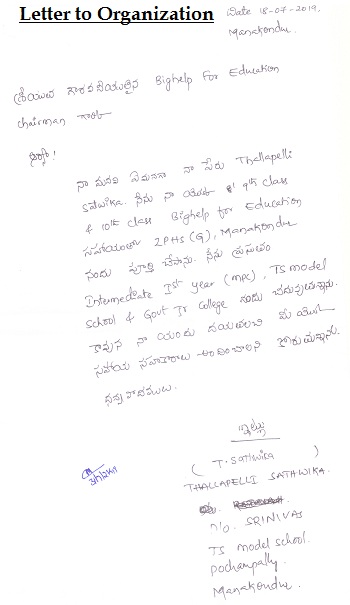 Letter to Organization
Date 18-07-2019.
Manakondur.
శ్రీయుత గౌరవనీయులైన Bighelp For Education
chairman గారికి
సార్!
నా మనవి ఏమనగా నా పేరు Thallapelli
Satwika. నేను నా యొక్క 9th class
& 10th class Bighelp for Education
సహాయంతో ZPHS (G), Manakondur
నందు పూర్తి చేసాను. నేను ప్రస్తుతం
Intermediate Ist year (mpc), TS model
School & Govt Jr College నందు చదువుతున్నాను.
కావున నా యందు దయతలచి మీ యొక్క
సహాయ సహకారాలు అందించాలని కోరుతున్నాను.
ధన్యవాదములు.
ఇట్లు
(T. Sathwika)
THALLAPELLI SATHWIKA.
SRINIVAS
TS model school.
pochampally
Manakondur.